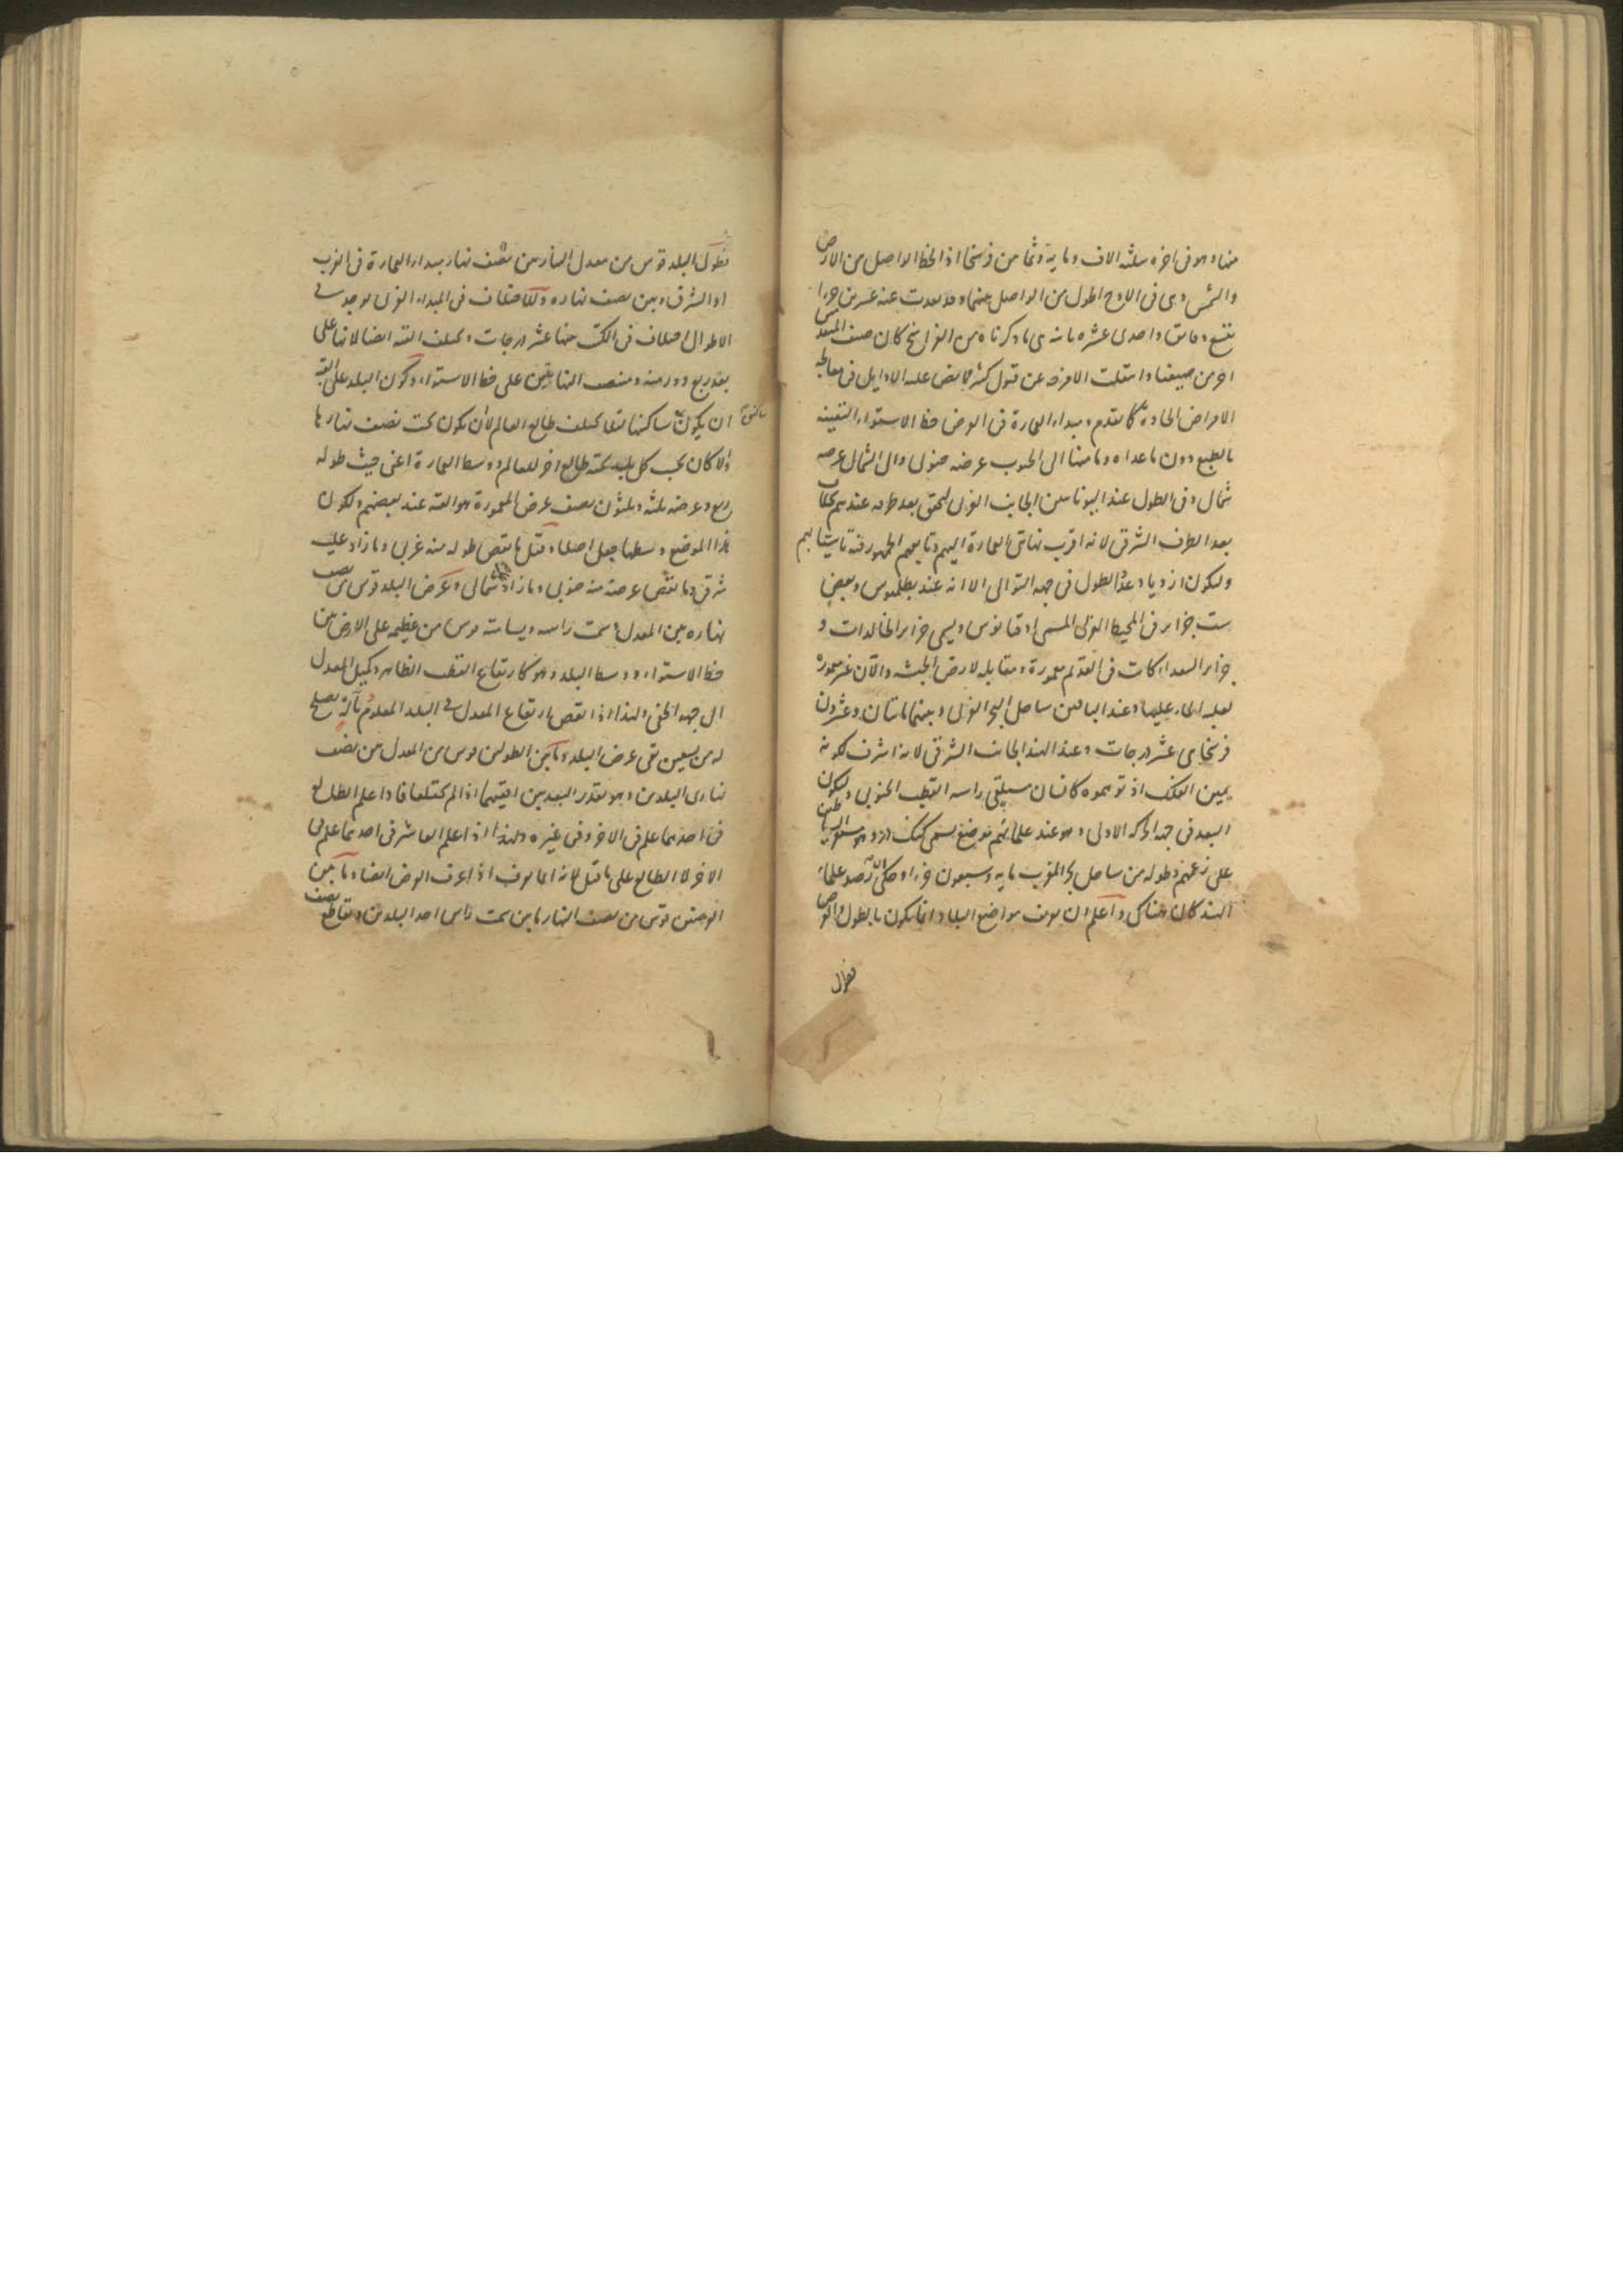 منها وهو فى اخره بثلثة الاف وماية وثمانين فرسخا اذ الخط الواصل من الارض
والشمس وهى فى الاوج اطول من الواصل بينهما وقد بعدت عنه عشرين جزءا
تسع دقايق واحدى عشرة ثانية ما ذكرناه من الفراسخ كان صيف
اخر من صيفنا الامزجة عن قبول الاوايل فى معالجة
الامراض الحادة كما تقدم ومبداء العمارة فى العرض خط الاستواء لتعينه
بالطبع دون ما عداه وما منها الى الجنوب عرضه جنوبى والى الشمال عرضه
شمالى وفى الطول عند اليونانيين الجانب الغربى لتحقق بعد طرفه عندهم بخلاف
بعد الطرف الشرقى لانه اقرب نهايتى العمارة اليهم وتابعهم الجمهور فيه تاسيا بهم
وليكون ازدياد عدد الطول فى جهة التوالى الا انه عند بطلميوس وبعض
ست جزاير فى المحيط الغربى المسمى اوقيانوس ويسمى جزاير الخالدات و
جزاير السعداء كانت فى القديم معمورة ومقابلة لارض الحبشة والآن غير معمورة
لغلبة الماء عليها وعند الباقين ساحل البحر الغربى وبينهما مائتان وعشرون
فرسخا هى عشر درجات وعند الهند الجانب الشرقى لانه اشرف لكونه
يمين الفلك اذ توهموه كانسان مستلقى راسه القطب الجنوبى وليكون
البعد فى جهة الحركة الاولى وهو عند علمائهم موضع يسمى كنك دز وهو مستقر الشياطين
على زعمهم وطوله من ساحل بحر المغرب ماية وسبعون جزءا وحكى ان رصد علماء
الهند كان هناك واعلم ان تعرف مواضع البلاد انما يكون بالطول والعرض
فطول
فطول البلد قوس من معدل النهار بين نصف نهار مبداء العمارة فى الغرب
او الشرق وبين نصف نهاره وللاختلاف فى المبداء الغربى يوجد فى
الاطوال اختلاف فى الكتب منها عشر درجات ويختلف القبة ايضا لانها على
بعد ربع دور منه ومنتصف النهايتين على خط الاستواء وكون البلد على القبة
ان يكون ساكنها فلا يختلف طالع العالم لان يكون تحت نصف نهارها
والا كان بحسب كل بلد تحته طالع اخر للعالم ووسط العمارة اعنى حيث طوله
ربع وعرضه ثلثة وثلثون نصف عرض المعمورة هو القبة عند بعضهم ولكون
هذا الموضع وسطها جعل اصلا وقيل ما نقص طوله منه غربى وما زاد عليه
شرقى وما نقص عرضه منه جنوبى وما زاد شمالى وعرض البلد قوس من نصف
نهاره بين المعدل وسمت راسه ويسامته قوس من عظيمة على الارض بين
خط الاستواء ووسط البلد وهو كارتفاع القطب الظاهر وكميل المعدل
الى جهة الخفى ولهذا اذا نقص ارتفاع المعدل فى البلد المعلوم بآلة تصلح
له من تسعين بقى عرض البلد وما بين الطولين قوس من المعدل بين نصف
نهارى البلدين وهو بقدر البعد بين افقيهما اذا لم يختلفا فاذا علم الطالع
فى احدهما علم فى الاخر وفى غيره ولهذا اذا علم العاشر فى احدهما علم فى
الاخر لا الطالع على ما قيل لانه انما يعرف اذا عرف العرض ايضا وما بين
العرضين قوس من نصف النهار ما بين سمت راس احد البلدين وتقاطع نصف